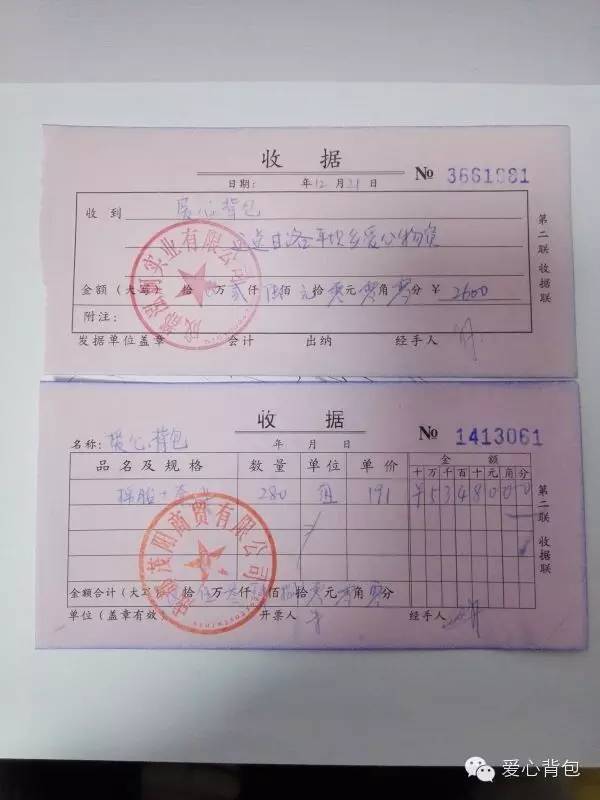 收据
No 3661981
日期: 年12月21日
收到 爱心背包
爱心物资
金额(大写) 拾 万贰仟陆佰 拾零元零角零分 ¥ 2600
附注:
发据单位盖章 会计 出纳 经手人
第二联 收据联
实业有限公司
收据
No 1413061
名称: 爱心背包 年 月 日
品名及规格 数量 单位 单价 金额
十万千百十元角分
280 191 ¥5348000
商贸有限公司
金额合计(大写) 拾伍万叁仟 佰捌拾零元零角零分
单位(盖章有效) 开票人 经手人
第二联 收据联
爱心背包